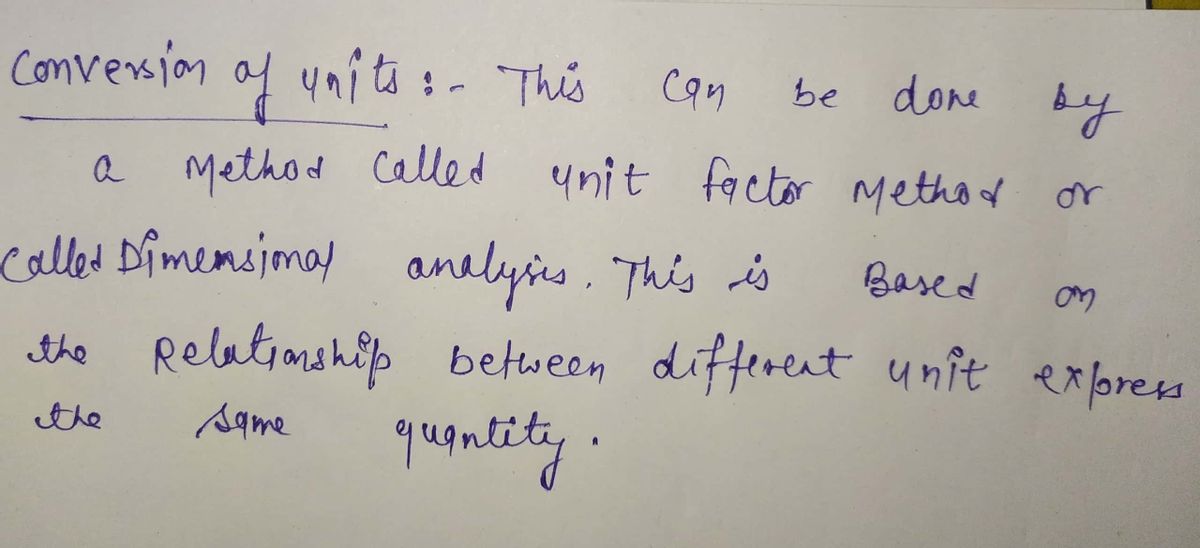 Conversion of units :- This can be done by
a Method Called unit factor Method or
Called Dimensional analysis. This is Based on
the Relationship between different unit express
the same quantity.